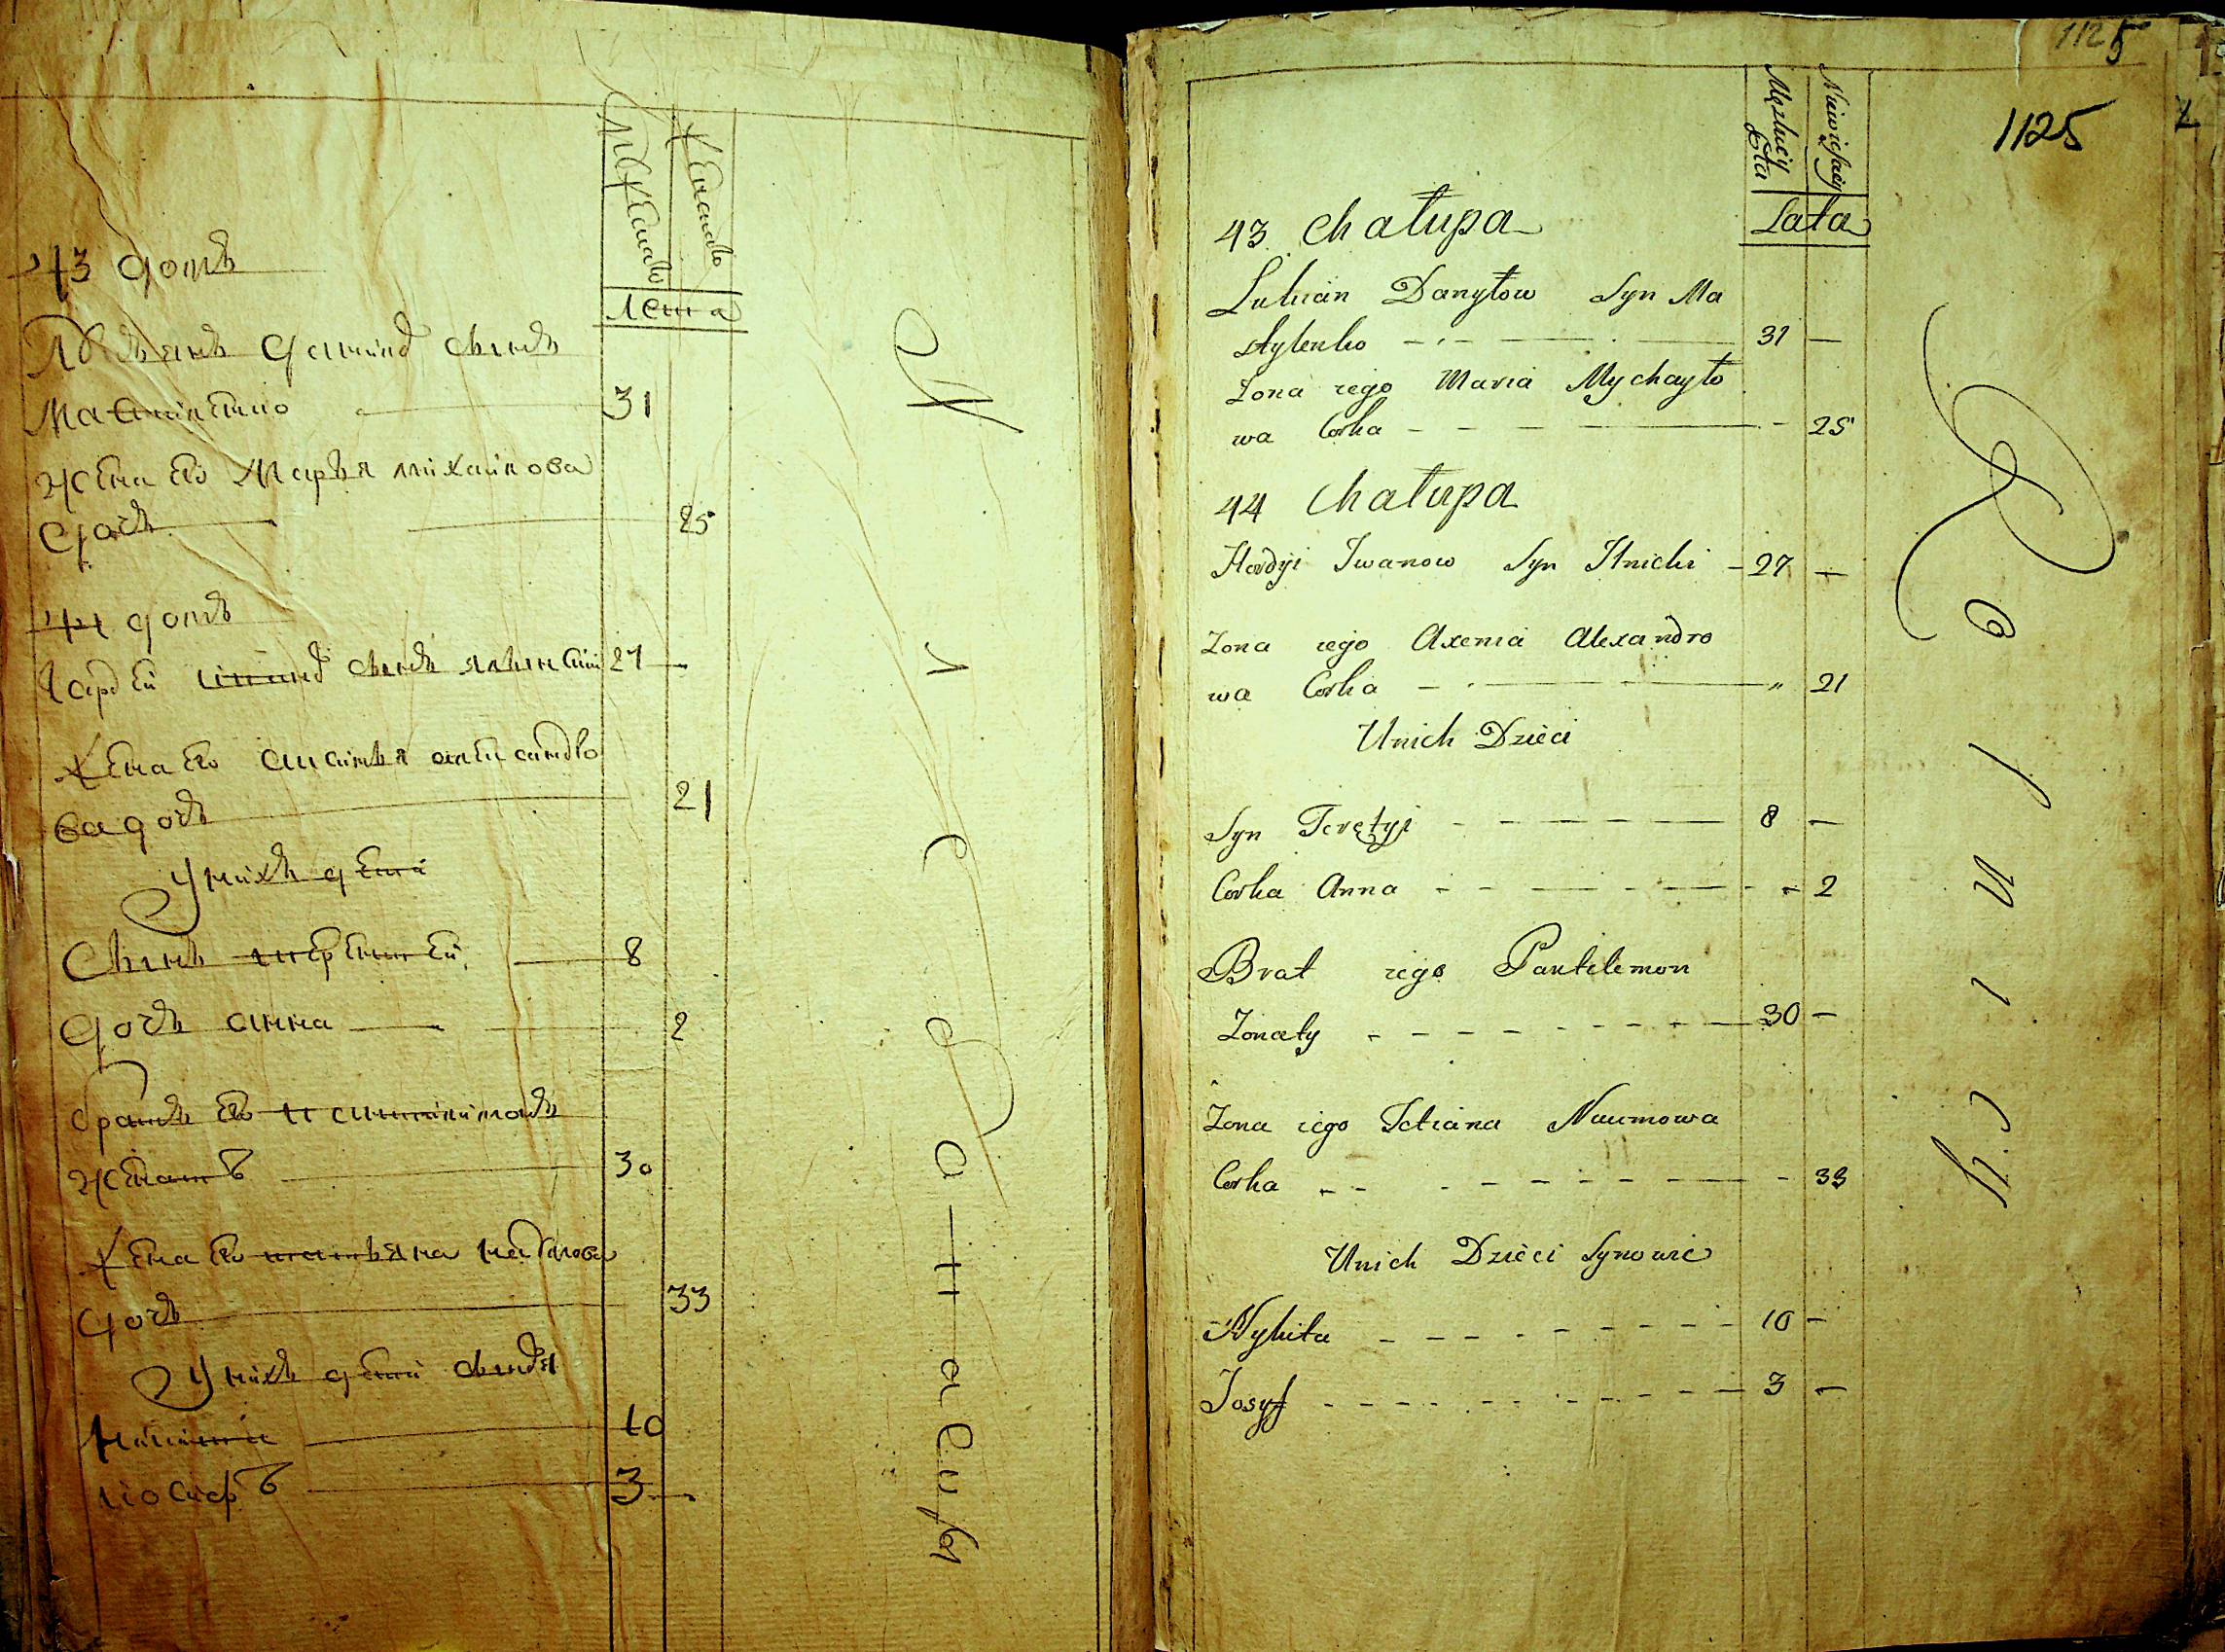 43 домъ
Лукъянъ Данилов сынъ
Матвіиенко 31
жена его Марья михаилова
дочь 25
44 домъ
Гордей иванов сынъ 27
жена его аксинья александро
ва дочь 21
У нихъ дети
Сынъ терентей 8
дочь анна 2
братъ его пантилимонъ
женатъ 30
жена его татьяна наумова
дочь 33
У нихъ дети сыновья
никита 10
иосифъ 3
Мужеска
Женска
лета
1125
1125
Męzkiey
Niewieściey
Lata
43 Chałupa
Lukian Danyłow Syn Ma
31 —
Żona iego Maria Mychayło
wa Corka 25
44 Chałupa
Hordyi Iwanow Syn Ilnicki 27 —
Żona iego Axenia Alexandro
wa Corka 21
Unich Dzieci
Syn Teretyi 8 —
Corka Anna 2
Brat iego Pantelemon
Żonaty 30 —
Żona iego Tetiana Naumowa
Corka 33
Unich Dzieci Synowie
Nykita 10 —
Josyf 3 —